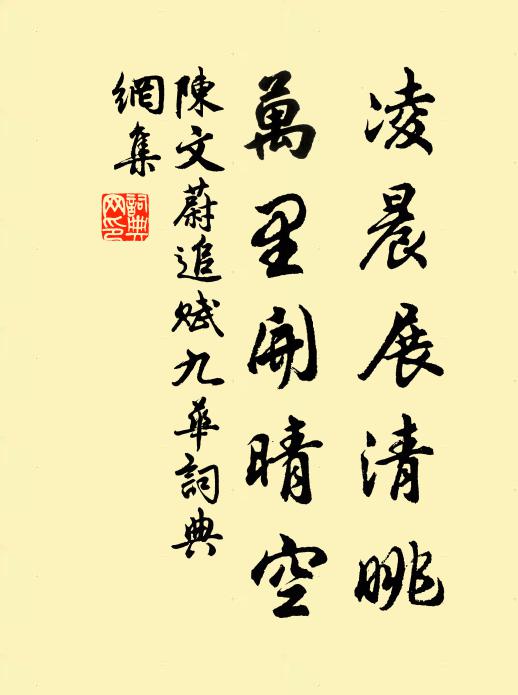 凌晨展清眺
萬里開晴空
陳文蔚追賦九華詞典
網集
詞典網印